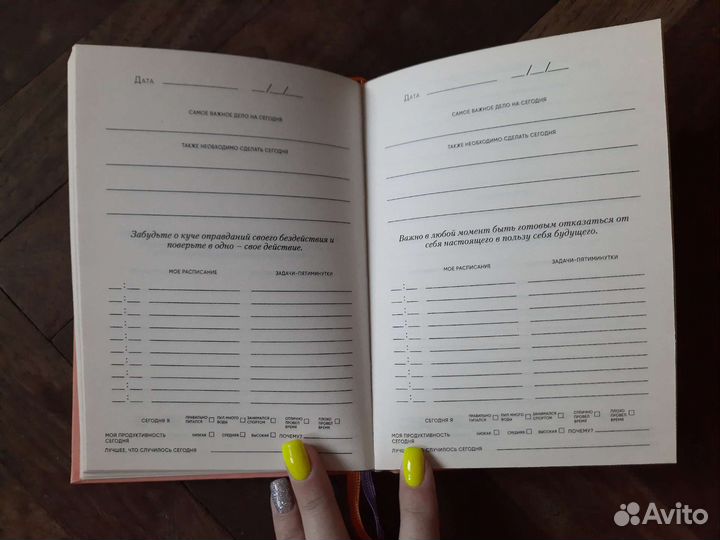 Дата
_/_/_
САМОЕ ВАЖНОЕ ДЕЛО НА СЕГОДНЯ
ТАКЖЕ НЕОБХОДИМО СДЕЛАТЬ СЕГОДНЯ
Забудьте о куче оправданий своего бездействия и
поверьте в одно – свое действие.
МОЕ РАСПИСАНИЕ
ЗАДАЧИ-ПЯТИМИНУТКИ
СЕГОДНЯ Я
ПРАВИЛЬНО
ПИТАЛСЯ
ПИЛ МНОГО
ВОДЫ
ЗАНИМАЛСЯ
СПОРТОМ
ОТЛИЧНО
ПРОВЕЛ
ВРЕМЯ
ПЛОХО
ПРОВЕЛ
ВРЕМЯ
МОЯ ПРОДУКТИВНОСТЬ
СЕГОДНЯ
НИЗКАЯ
СРЕДНЯЯ
ВЫСОКАЯ
ПОЧЕМУ?
ЛУЧШЕЕ, ЧТО СЛУЧИЛОСЬ СЕГОДНЯ
Дата
_/_/_
САМОЕ ВАЖНОЕ ДЕЛО НА СЕГОДНЯ
ТАКЖЕ НЕОБХОДИМО СДЕЛАТЬ СЕГОДНЯ
Важно в любой момент быть готовым отказаться от
себя настоящего в пользу себя будущего.
МОЕ РАСПИСАНИЕ
ЗАДАЧИ-ПЯТИМИНУТКИ
СЕГОДНЯ Я
ПРАВИЛЬНО
ПИТАЛСЯ
ПИЛ МНОГО
ВОДЫ
ЗАНИМАЛСЯ
СПОРТОМ
ОТЛИЧНО
ПРОВЕЛ
ВРЕМЯ
ПЛОХО
ПРОВЕЛ
ВРЕМЯ
МОЯ ПРОДУКТИВНОСТЬ
СЕГОДНЯ
НИЗКАЯ
СРЕДНЯЯ
ВЫСОКАЯ
ПОЧЕМУ?
ЛУЧШЕЕ, ЧТО СЛУЧИЛОСЬ СЕГОДНЯ
Avito